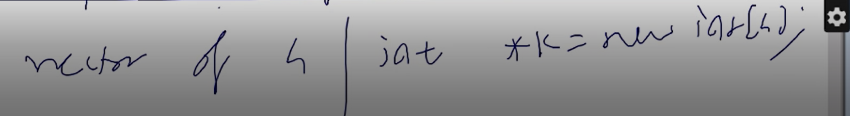 vector of n | int *k = new int[n];